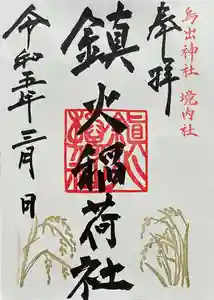 奉拝
鳥出神社 境内社
鎮火稲荷社
令和五年三月 日